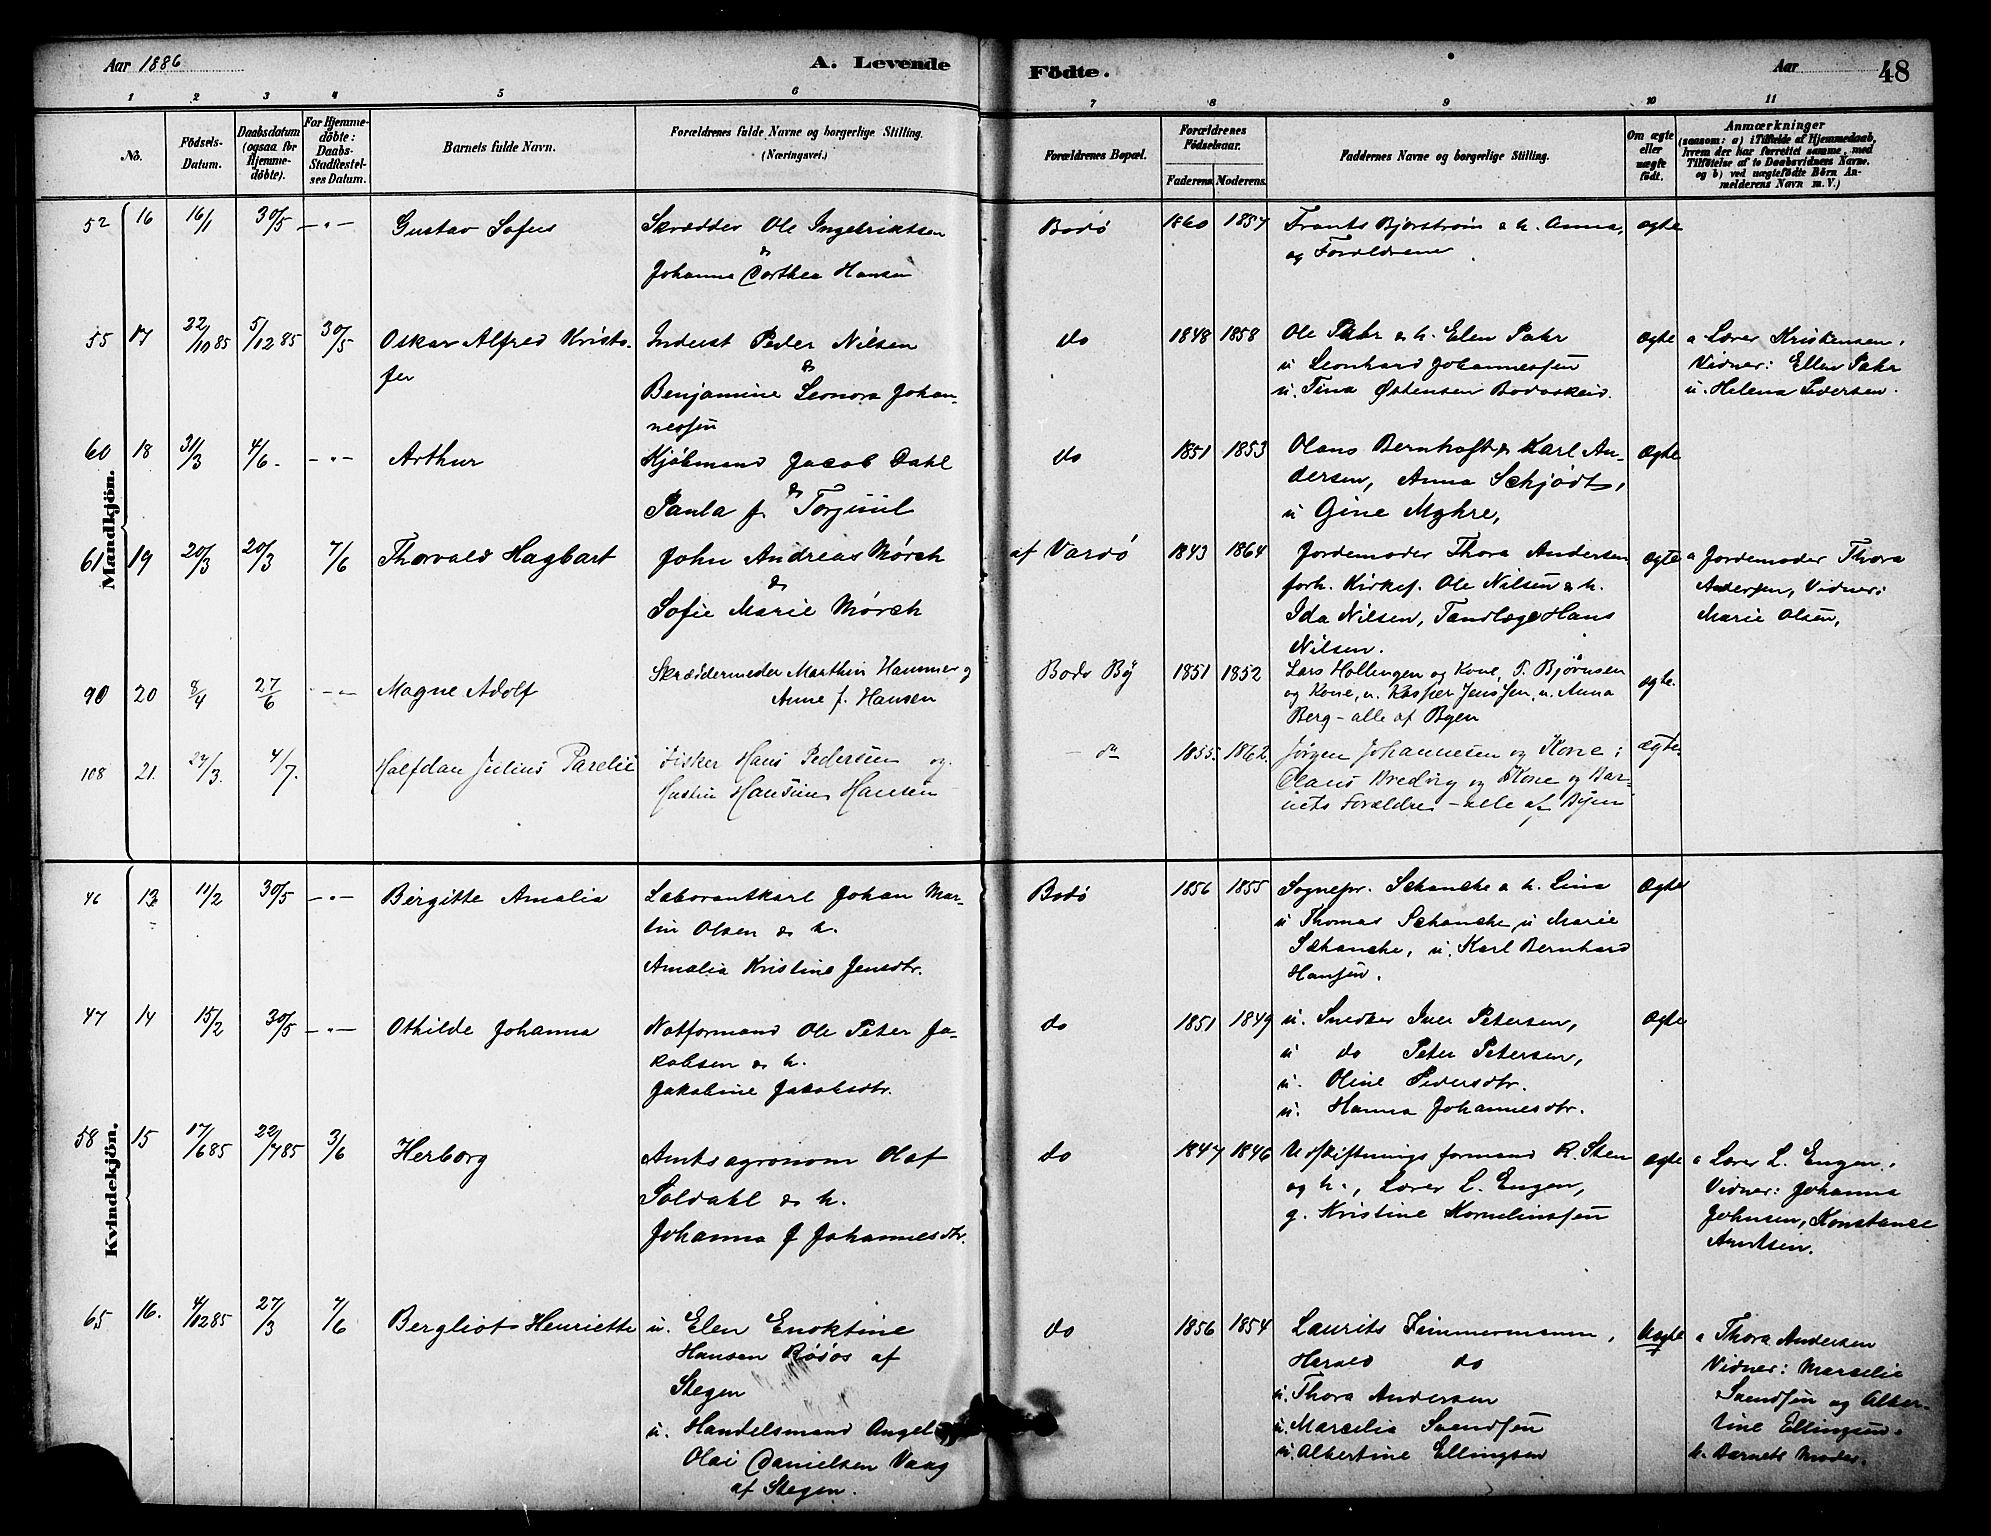 Aar 1886 A. Levende Fødte. Aar 48
1 2 3 4 5 6 7 8 9 10 11
No. Fødsels-Datum. Daabsdatum (ogsaa for Hjemmedöbte). For Hjemmedöbte: Daabs-Stadfæstelses Datum. Barnets fulde Navn. Forældrenes fulde Navne og borgerlige Stilling. (Næringsvei.) Forældrenes Bopæl. Forældrenes Födselsaar. Faderens. Moderens. Faddernes Navne og borgerlige Stilling. Om ægte eller uægte født. Anmærkninger (saasom: a) i Tilfælde af Hjemmedaab, hvem der har forrettet samme, med Tilföielse af to Daabsvidners Navne, og b) ved uægtefödte Börn Anmelderens Navn m. V.)
Mandkjön.
52 16 16/1 30/5 -"- Gustav Sofus Skrædder Ole Ingebriktsen Bodø 1860 1857 Frants Bjørstrøm & h. Anna, ægte
& og Forældrene
Johanna Dorthea Hansen
55 17 22/10 85 5/12 85 30/5 Oskar Alfred Kristo- Inderst Peder Nilsen do 1848 1858 Ole Pahr & h. Elen Pahr Ægte a Lærer Kristensen.
fer & u Leonhard Johannessen Vidner: Ellen Pahr
Benjamine Leonora Johan- u. Tina Østensen Bodøskeid. u. Helena Pedersen.
nessen
60 18 31/3 4/6. -"- Arthur Kjøbmand Jacob Dahl do 1851 1853 Olaus Bernhoft & Karl An- Ægte
& dersen, Anna Schjødt,
Paula f. Torjuul u Gine Myhre,
61 19 20/3 20/3 7/6 Thorvald Hagbart John Andreas Mørch af Vardø 1843 1864 Jordemoder Thora Andersen ægte a Jordemoder Thora
& forh. Kirkes. Ole Nilsen & h. Andersen, Vidner:
Sofie Marie Mørch Ida Nilsen, Tandlæge Hans Marie Olsen,
Nilsen.
90 20 8/4 27/6 -"- Magne Adolf Skræddermester Marthin Hammer og Bodø By 1851 1852 Lars Hollingen og Kone, T. Bjørnsen ægte.
Anne f. Hansen og Kone, u. Kasper Jenssen, u. Anna
Berg - alle af Byen
108 21. 24/3. 4/7. Halfdan Julius Parelie Fisker Hans Pedersen og - do 1855. 1862. Jørgen Johannesen og Kone; ægte
Hustru Hansine Hansen Olaus Bredvig og Kone og Bar-
nets Forældre - alle af Byen
Kvindekjön.
46 13 11/2 30/5 -"- Birgitte Amalia Laborantkarl Johan Mar- Bodø 1856 1855 Sognepr. Schanche & h. Lina Ægte
tin Olsen & h. u Thomas Schanche, u Marie
Amalia Kristine Jensdtr. Schanche, u. Karl Bernhard
Hansen.
47 14 15/2 30/5 -"- Othilde Johanna Notformand Ole Peter Ja- do 1851 1849 u. Snedker Iver Petersen, Ægte
kobsen & h. u do Peter Petersen,
Jakobine Jakobsdtr. u. Oline Pedersdtr.
u. Hanna Johannesdtr.
58 15 17/6 85 22/7 85 3/6 Herborg Amtsagronom Olaf do 1847 1846 Udskiftningsformand R. Sten Ægte a Lærer L. Engen.
Soldahl & h. og h., Lærer L. Engen, Vidner: Johanna
Johanna f Johannesdtr. g. Kristine Kornelinssen Johnsen, Konstance
Arntsen.
65 16. 4/12 85 27/3 7/6 Bergliot Henriette u. Elen Enoktine do 1856 1854 Laurits Zimmermann, Uægte a Thora Andersen
Hansen Røsøs af Harald do Vidner: Marselie
Stegen u. Thora Andersen Svendsen og Alber-
u. Handelsmand Angel u. Marselia Svendsen tine Ellingsen.
Olai Danielsen Vaag u. Albertine Ellingsen b. Barnets Moder.
af Stegen.